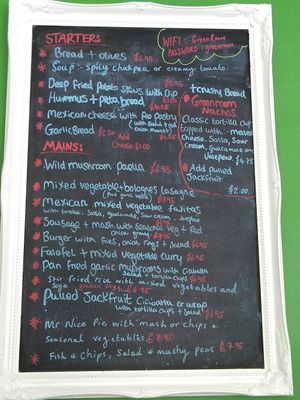 STARTERS
WIFI :- GreenRoom
PASSWORD - greenroom
* Bread + olives £2.95
* Soup :- Spicy chickpea or creamy tomato.
* Deep Fried potato skins with Dip
+ crusty Bread
* Hummus + pitta bread
* Mexican cheese with Filo Pastry £4.95
(with salad + red onion chutney)
* Garlic Bread £2.50 Add Cheese £1.00
* Greenroom Nachos
Classic tortilla chip
topped with:- melted
Cheese, Salsa, Sour
Cream, Guacamole and
Jalapeno £4.75
* Add pulled
Jackfruit
£2.00
MAINS:
* Wild mushroom paella £6.95
* Mixed vegetable + bolognes lasagne
(plus garlic bread) £7.95
* Mexican mixed vegetable fajitas
with tortilla, Salsa, guacamole, Sour cream, Jalapeno
* Sausage + mash with Seasonal veg + Red
onion gravy £7.95
* Burger with fries, onion rings + Salad £6.95
* Falafel + mixed vegetable curry £6.95
* Pan fried garlic mushrooms with ciabatta
Salad + tortilla chips £6.95
* Stir fried Rice with mixed vegetables and
Soya £6.95
* Pulled Jackfruit Ciabatta or wrap
with tortilla chips + Salad £6.95
* Mr. Nice Pie with mash or chips &
Seasonal vegetables. £7.95
* Fish & Chips, Salad & mushy peas £7.95